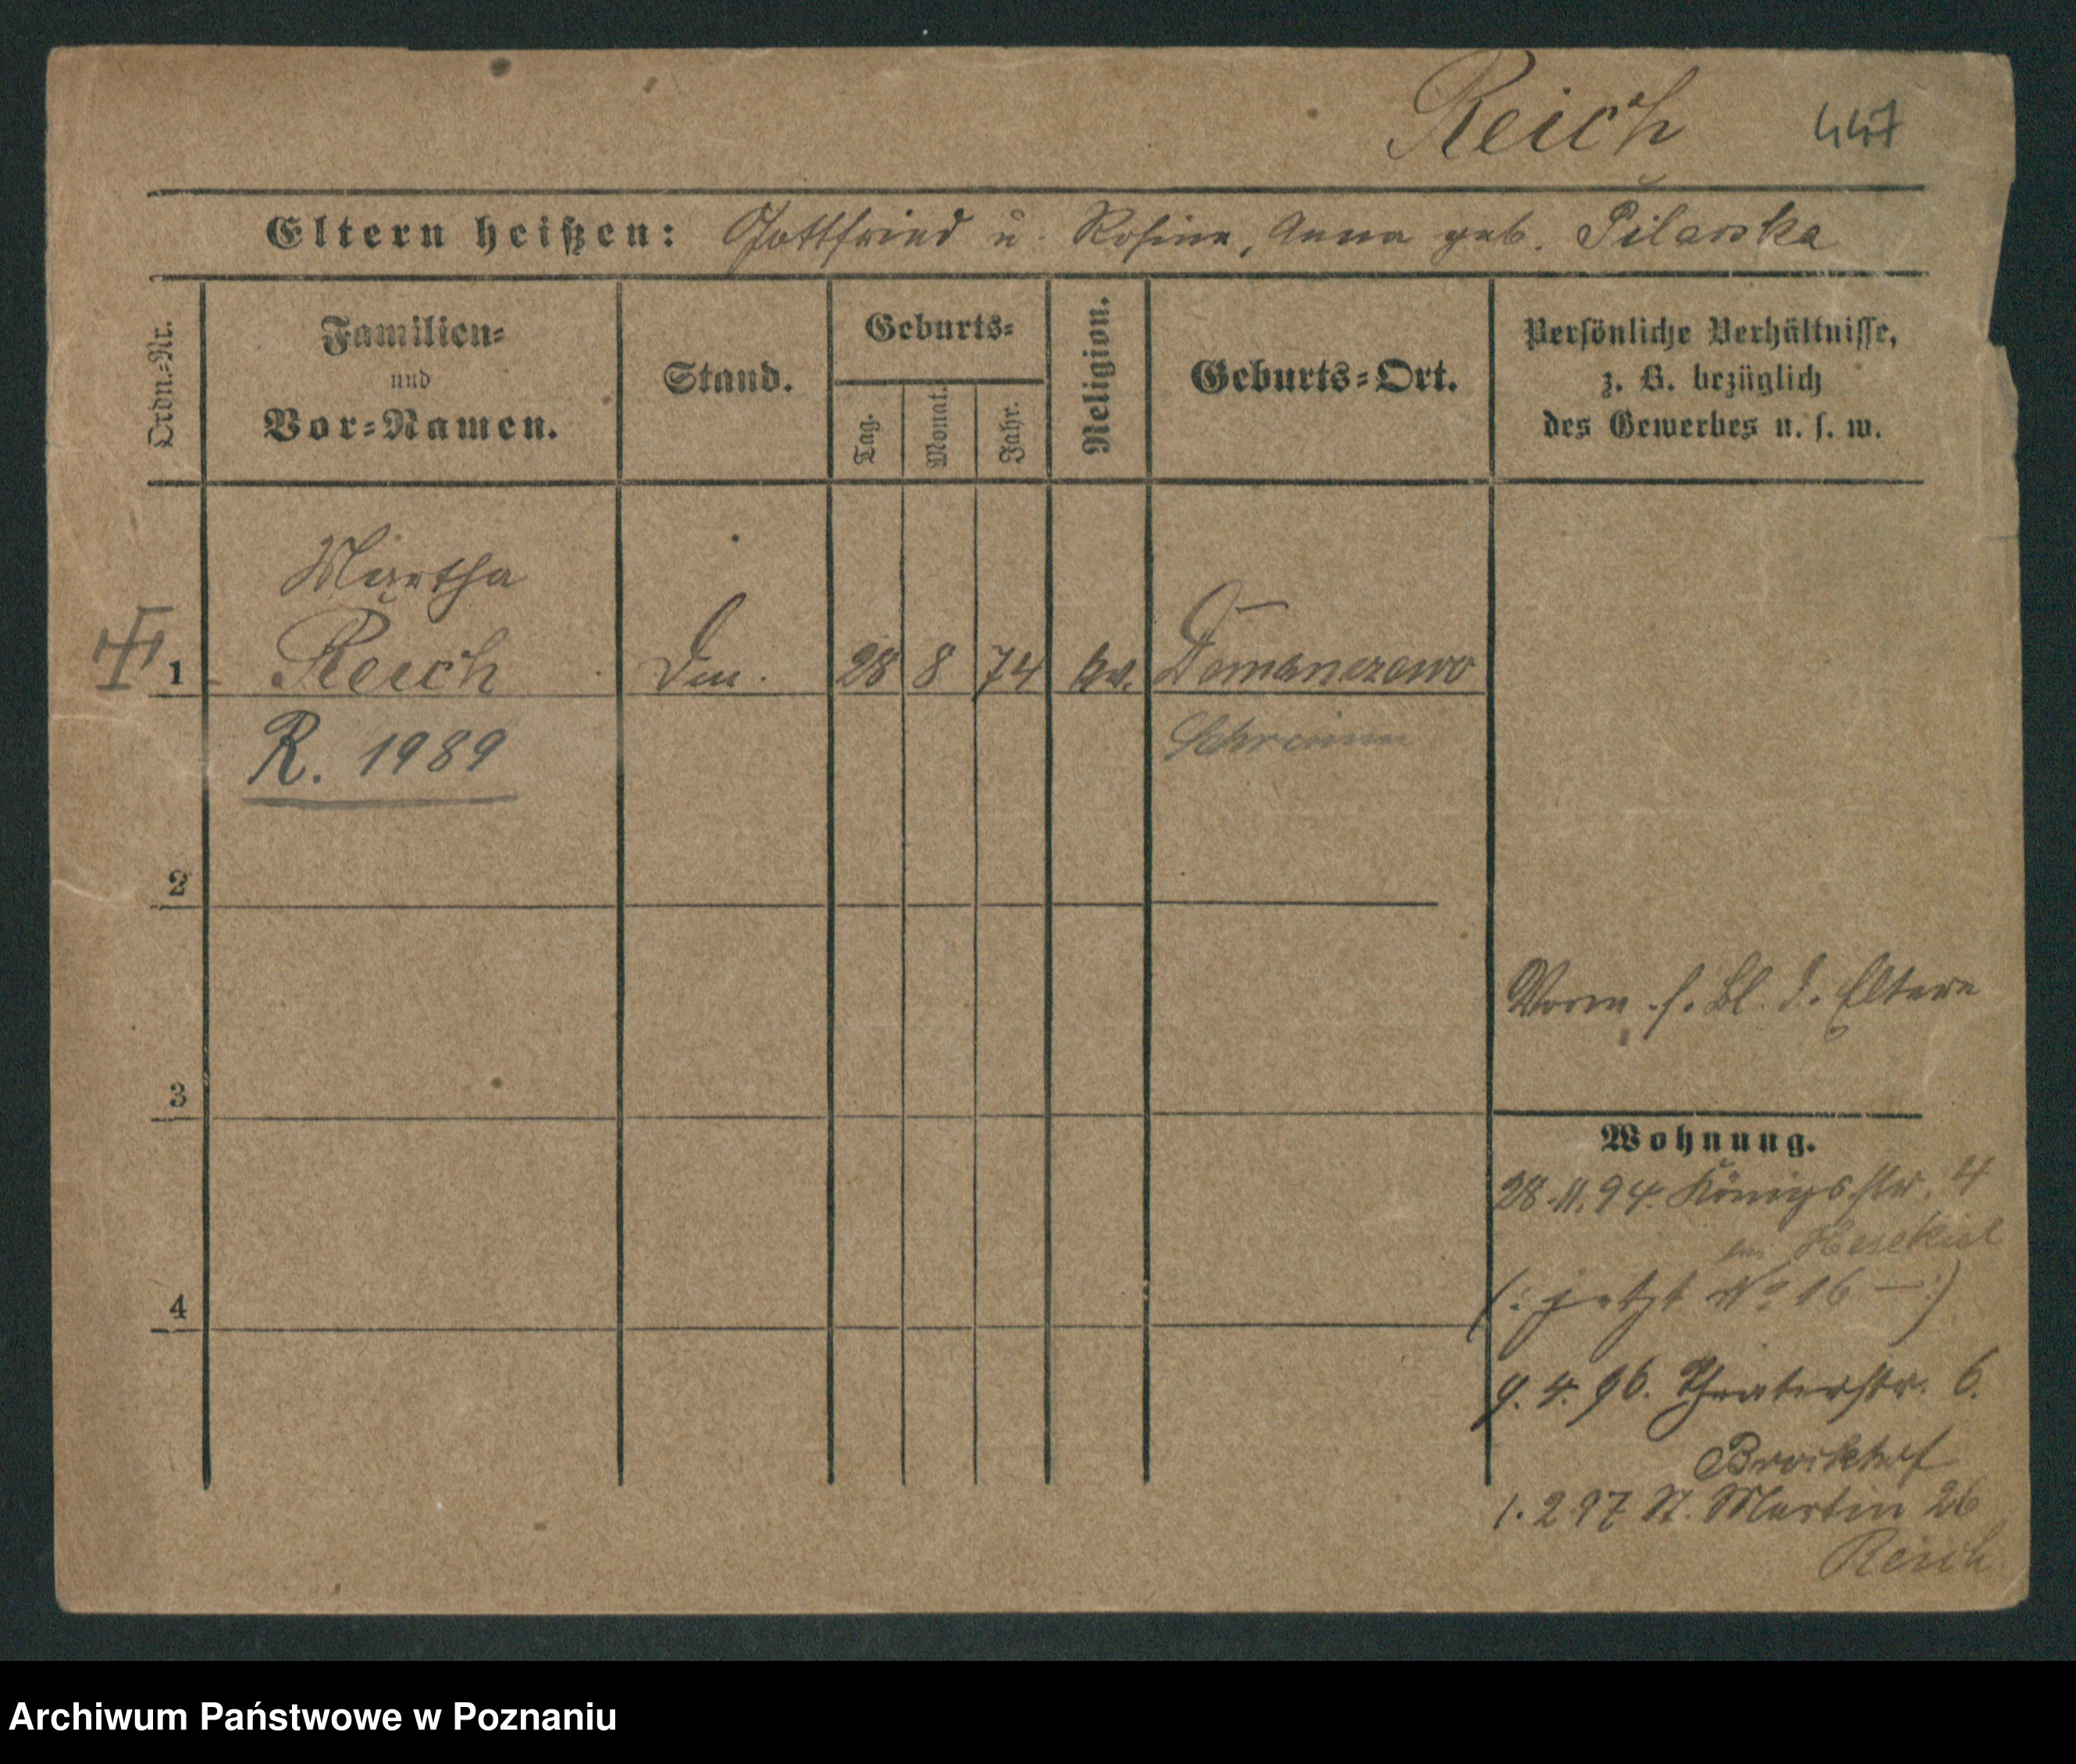 Reich 447
Eltern heißen: Gottfried u. Rosine, Anna geb. Pilarska
Ordn.-Nr.
Familien-
und
Vor-Namen.
Stand.
Geburts-
Tag.
Monat.
Jahr.
Religion.
Geburts-Ort.
Persönliche Verhältnisse,
z. B. bezüglich
des Gewerbes u. s. w.
Martha
1 Reich 28 8 74 Domanczewo
R. 1989 Schrimm
2
Vorm. s. Bl. d. Eltern
3
Wohnung.
28.11.94. Königsstr. 4
Hesekiel
4
(: jetzt No 16 — :)
9. 4. 96. Theaterstr. 6.
1. 2 97 St. Martin 26
Reich
Archiwum Państwowe w Poznaniu